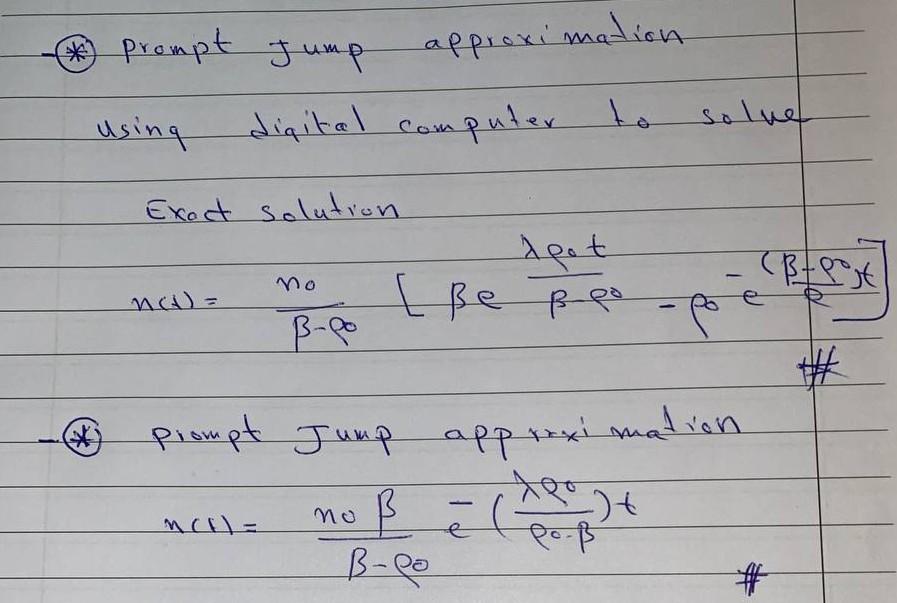 -⊛ prompt Jump approximation
using digital computer to solve
Exact solution
n(t) = n0/(β-ρ0) [ βe^(λρ0t/(β-ρ0)) - ρ0 e^(-(β-ρ0)t/ℓ) ]
#
-⊛ prompt Jump approximation
n(t) = n0 β/(β-ρ0) e^-(λρ0/(ρ0-β))t
#